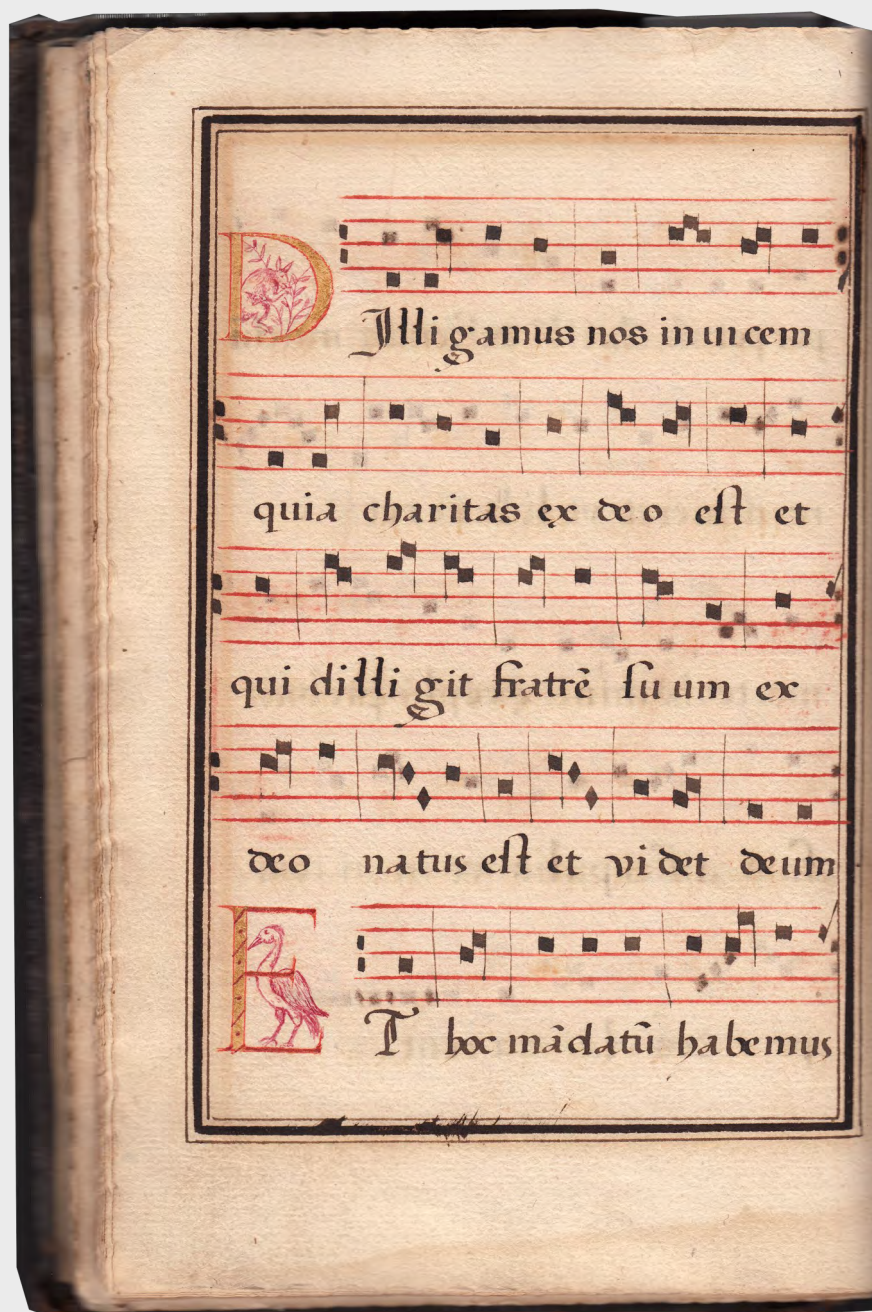 DIlli gamus nos in uicem
quia charitas ex deo est et
qui dilli git fratrē suum ex
deo natus est et videt deum
ET hoc mādatū habemus